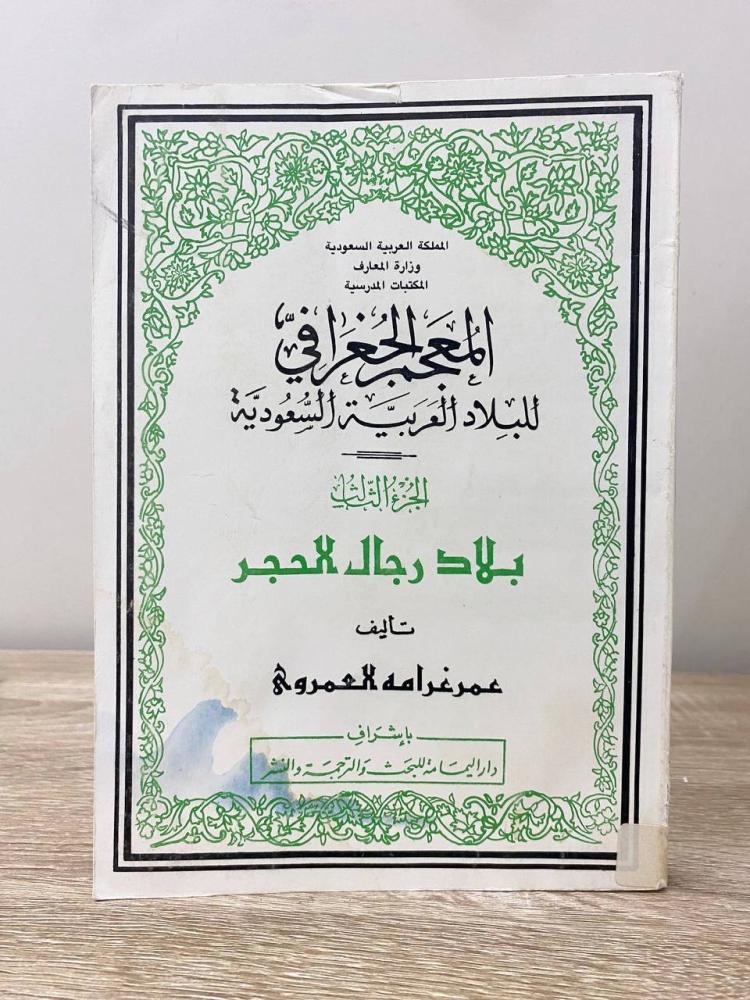 المملكة العربية السعودية
وزارة المعارف
المكتبات المدرسية
المُعجَم الجُغرَافيّ
للبِلاد العَرَبيَّة السُّعُوديَّة
الجُزءُ الثَّالثُ
بلاد رجال الحجر
تأليف
عمر غرامه العمروي
بإشراف
دار اليمامة للبحث والترجمة والنشر